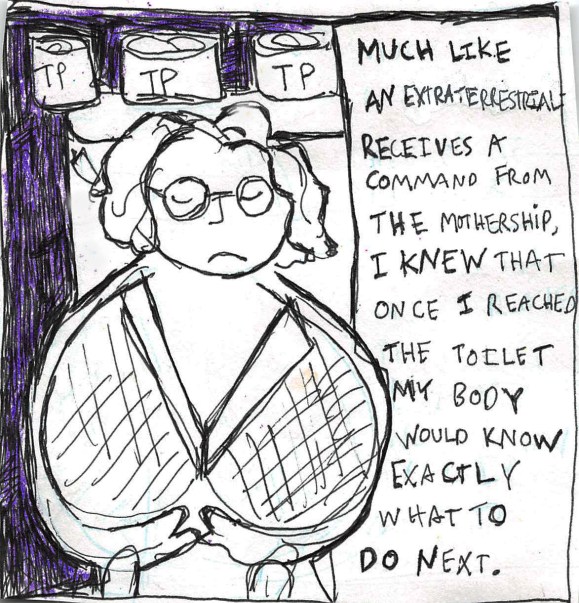 TP
TP
TP
MUCH LIKE
AN EXTRATERRESTRIAL
RECEIVES A
COMMAND FROM
THE MOTHERSHIP,
I KNEW THAT
ONCE I REACHED
THE TOILET
MY BODY
WOULD KNOW
EXACTLY
WHAT TO
DO NEXT.